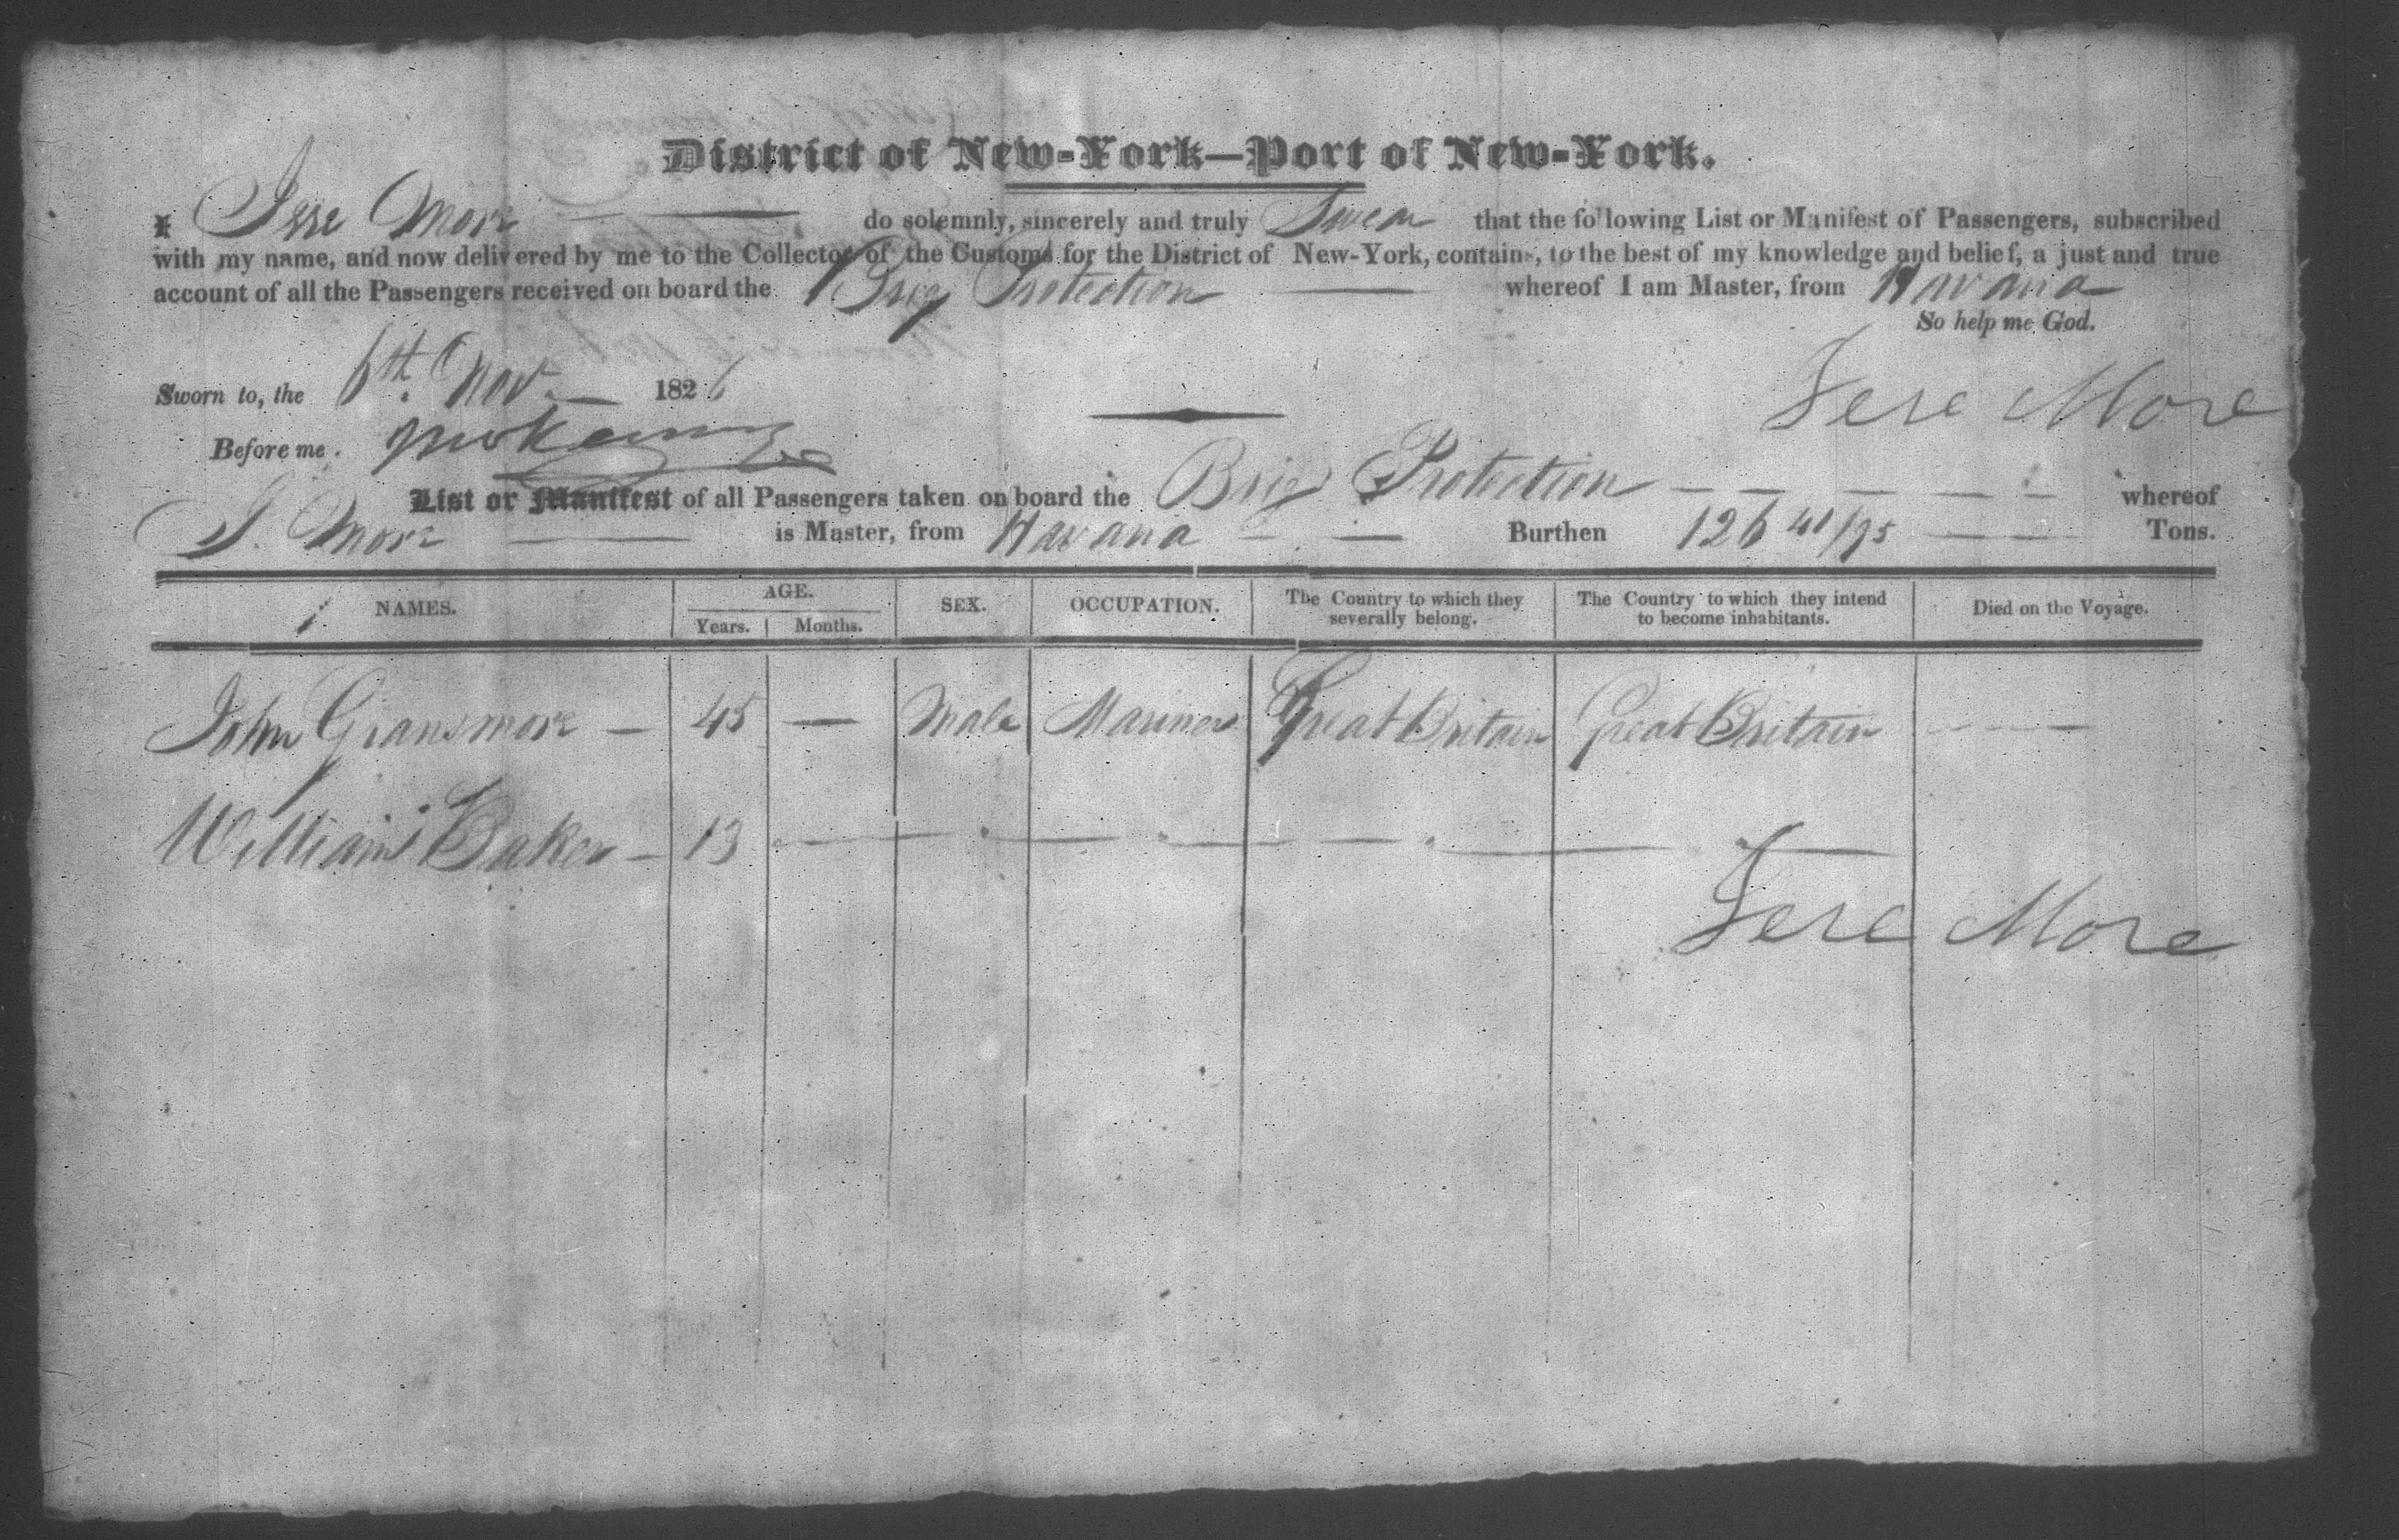 District of New-York—Port of New-York.
I Jesse More do solemnly, sincerely and truly Swear that the following List or Manifest of Passengers, subscribed
with my name, and now delivered by me to the Collector of the Customs for the District of New-York, contains, to the best of my knowledge and belief, a just and true
account of all the Passengers received on board the Brig Protection whereof I am Master, from Havana
So help me God.
Sworn to, the 6th. Nov. 1826
Jese More
Before me.
List or Manifest of all Passengers taken on board the Brig Protection whereof
J. More is Master, from Havana Burthen 126 41/95 Tons.
NAMES. AGE. SEX. OCCUPATION. The Country to which they severally belong. The Country to which they intend to become inhabitants. Died on the Voyage.
Years. Months.
John Gransmore — 45 — Male Mariner Great Britain Great Britain — — —
William Baker — 13 — — — — — — —
Jese More